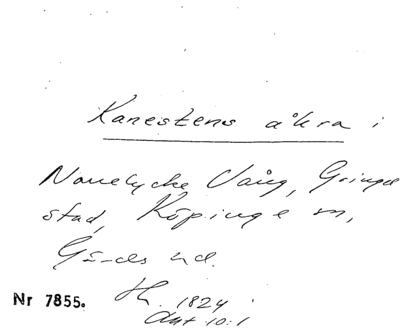 Karestens åkra i
Nouelycke Vång, Gringel
stad, Köpinge sn,
Gärds hd.
Nr 7855. Hh. 1824
Akt 10:1